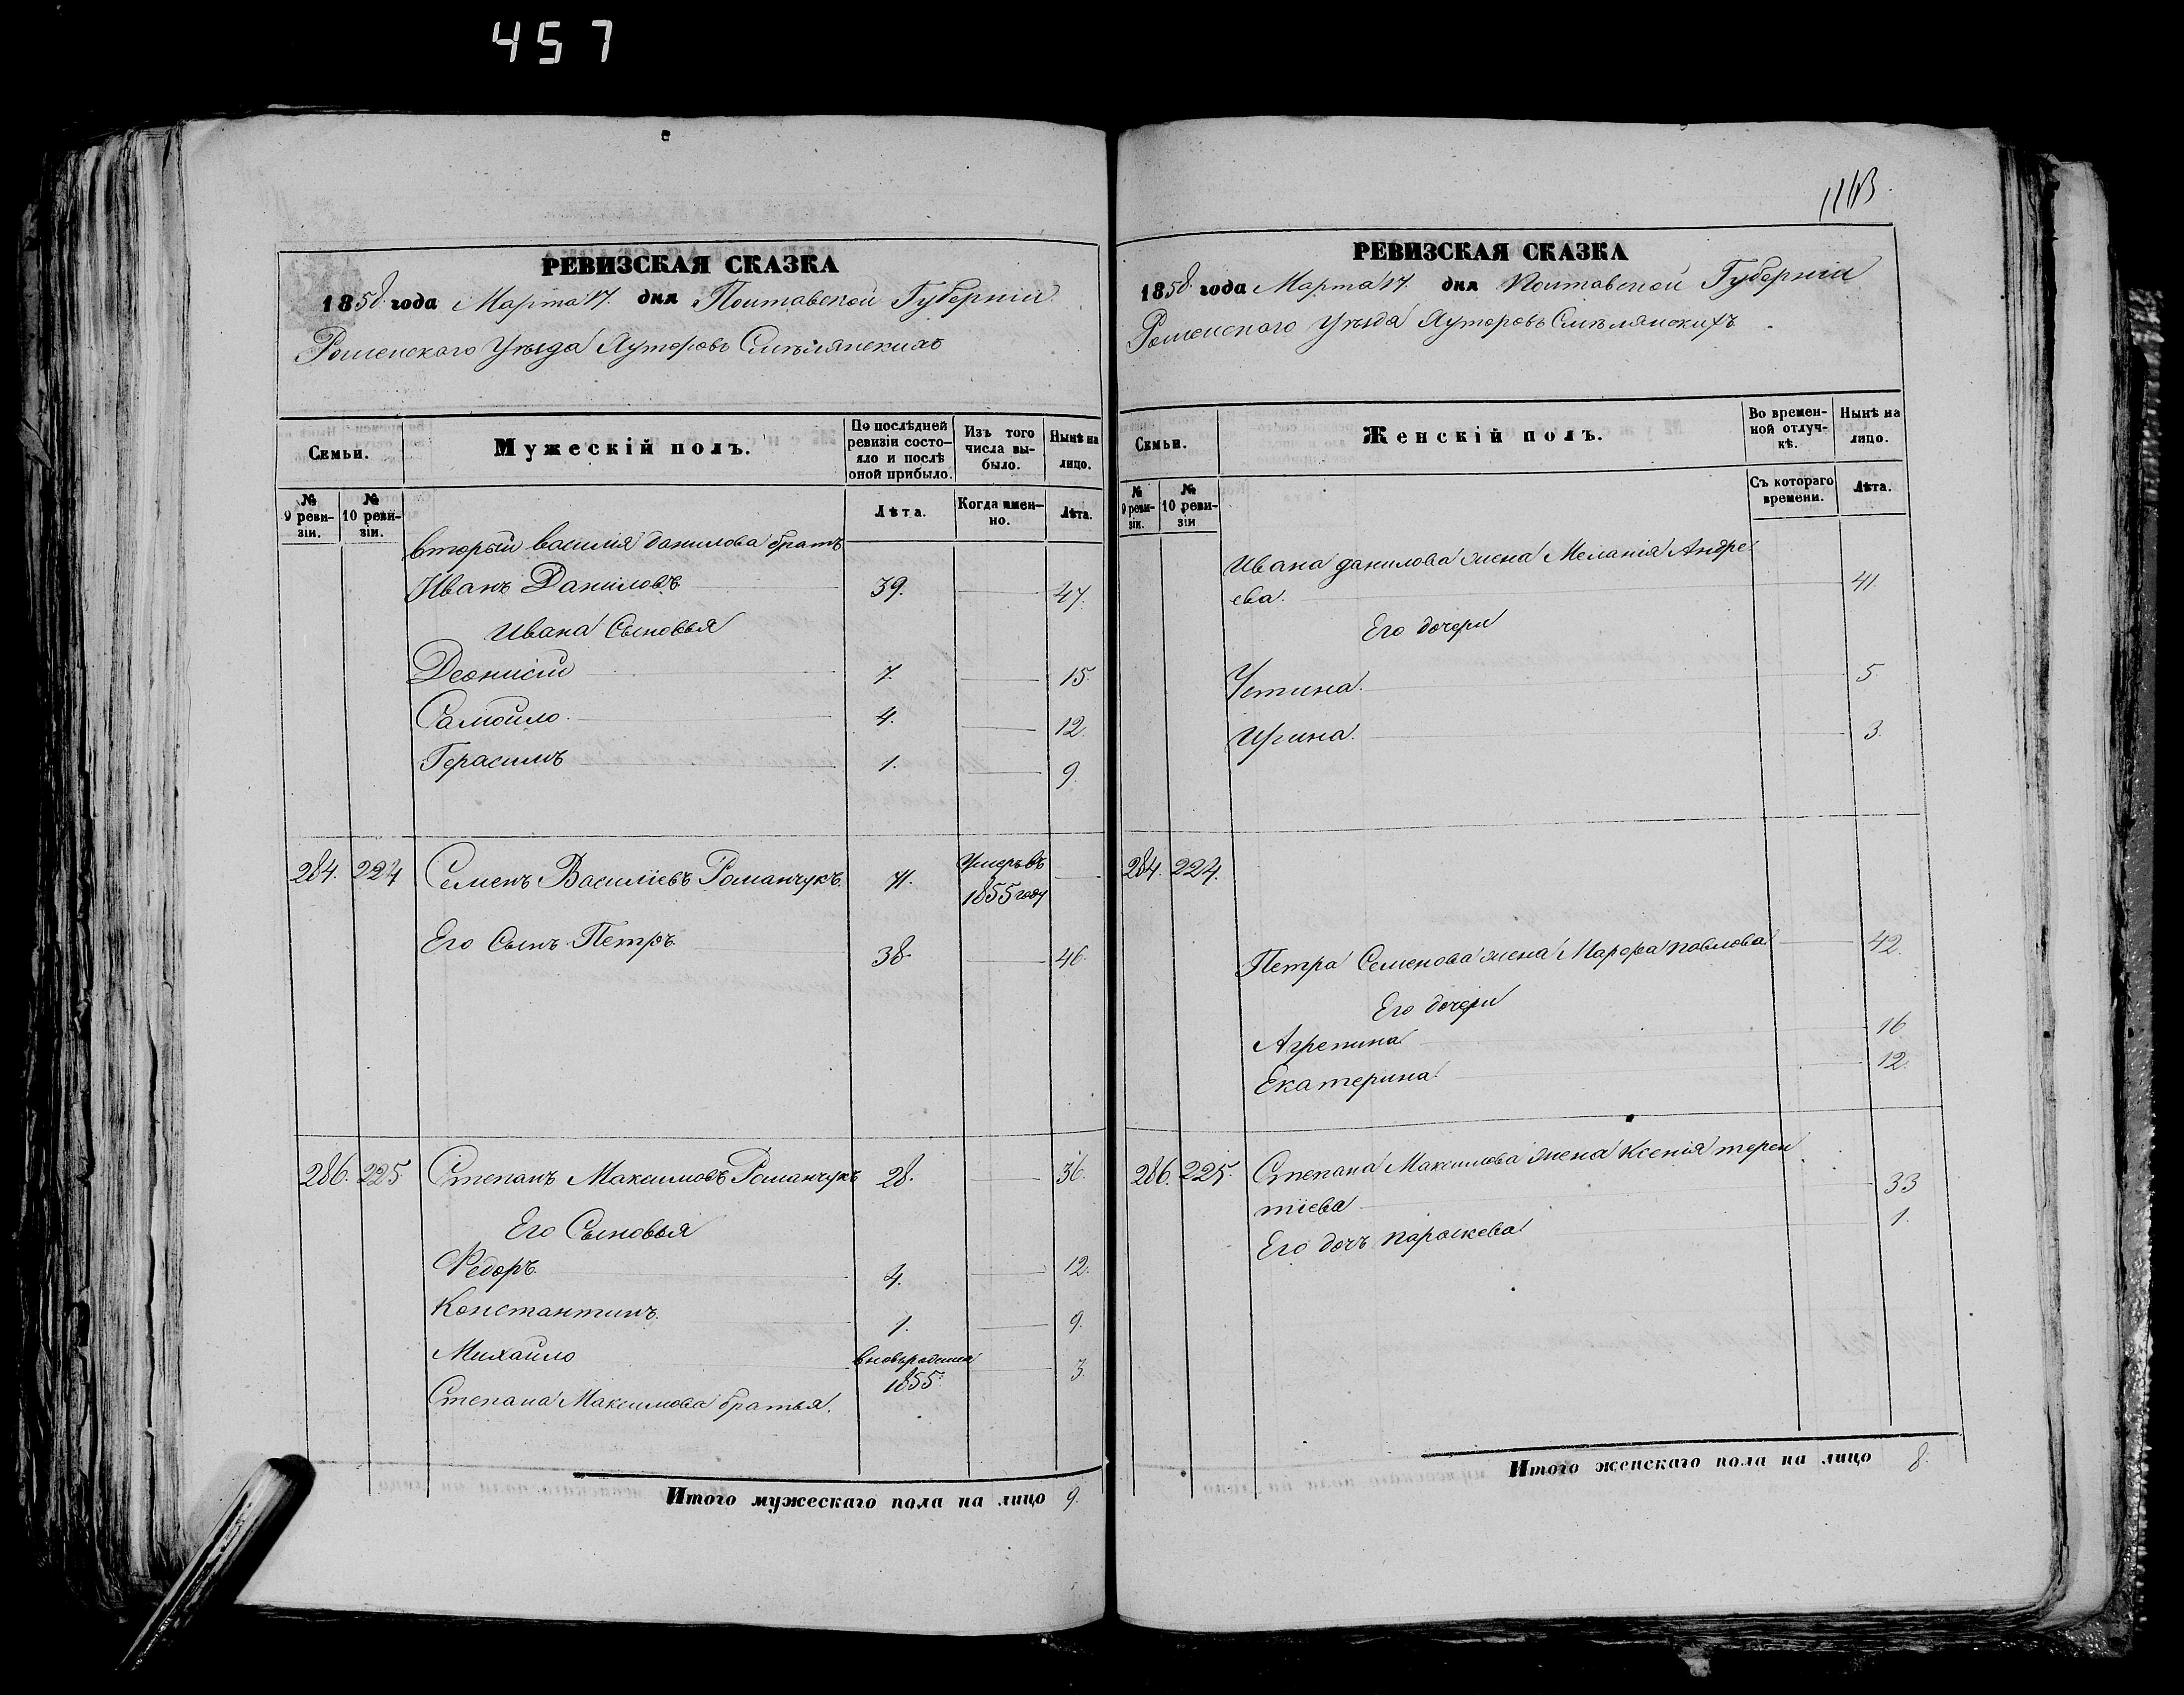 457
РЕВИЗСКАЯ СКАЗКА
1858 года Марта 17. дня Полтавской Губерніи
Роменского Уѣзда Хуторовъ Смѣлянскихъ
Семьи.
Мужескій полъ.
По послѣдней ревизіи состояло и послѣ оной прибыло.
Изъ того числа выбыло.
Нынѣ на лицо.
№ 9 ревизіи.
№ 10 ревизіи.
Лѣта.
Когда именно.
Лѣта.
Вторый Василія Данилова братъ
Иванъ Даниловъ 39. 47.
Ивана Сыновья
Деонисій 7. 15.
Самойло. 4. 12.
Герасимъ 1. 9.
284. 224 Семенъ Василіевъ Романчукъ. 71. Умеръ въ 1855 году
Его Сынъ Петръ. 38. 46.
286. 225 Степанъ Максимовъ Романчукъ 28. 36.
Его Сыновья
Федоръ. 4. 12.
Константинъ. 1. 9.
Михайло 1855. 3.
Степана Максимова братья.
Итого мужескаго пола на лицо 9.
РЕВИЗСКАЯ СКАЗКА
1858 года Марта 17. дня Полтавской Губерніи
Роменского Уѣзда Хуторовъ Смѣлянскихъ
Семьи.
Женскій полъ.
Во временной отлучкѣ.
Нынѣ на лицо.
№ 9 ревизіи.
№ 10 ревизіи
Съ котораго времени.
Лѣта.
Ивана Данилова жена Меланія Андре
ева. 41.
Его дочери
Устина. 5
Ирина. 3.
284. 224.
Петра Семенова жена Марфа Павлова 42.
Его дочери
Агрепина 16
Екатерина 12.
286. 225. Степана Максимова жена Ксенія Терен
тіева 33
Его дочь Параскева 1.
Итого женскаго пола на лицо 8.